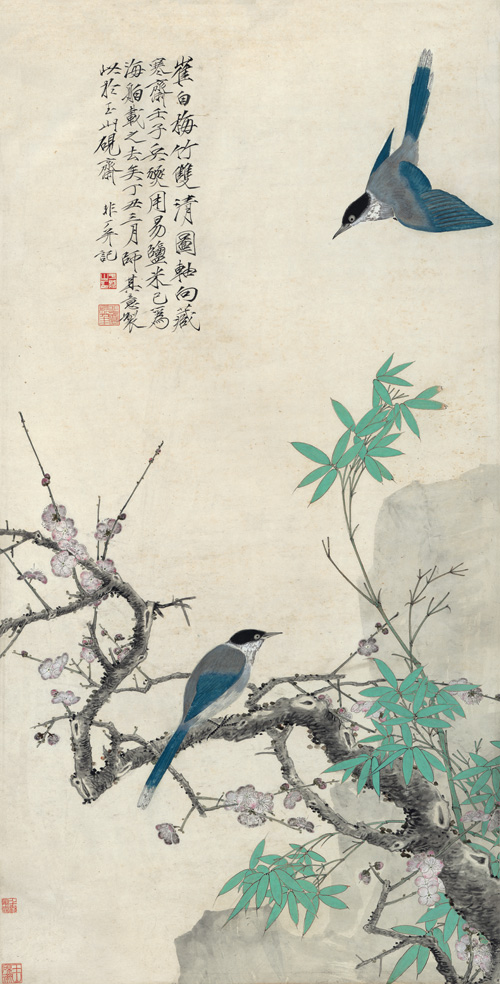 崔白梅竹雙清圖軸向藏
寒齋壬子兵燹用易鹽米已為
海舶載之去矣丁丑三月師其意製
此於玉山硯齋 非記